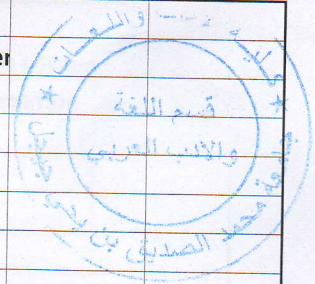 er
كلية الآداب واللغات
قسم اللغة
والأدب العربي
جامعة محمد الصديق بن يحي جيجل